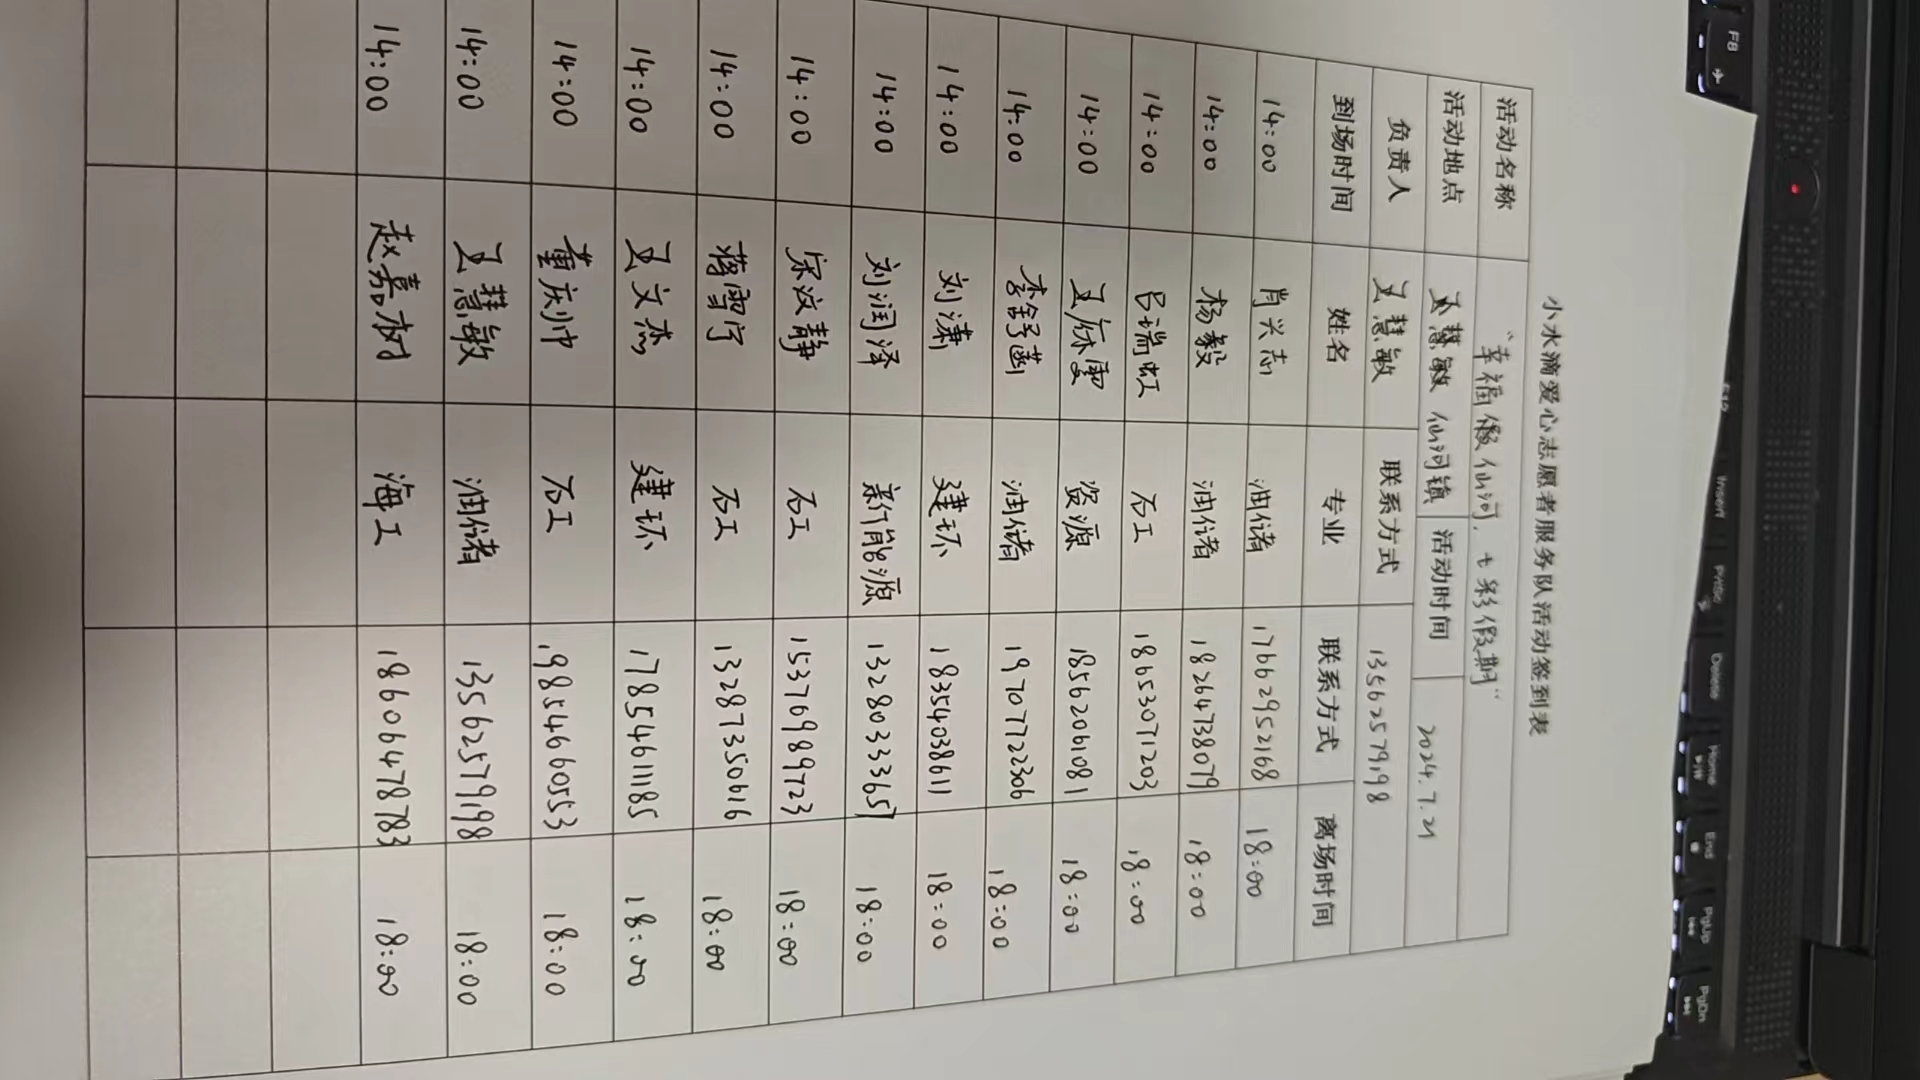 小水滴爱心志愿者服务队活动签到表
活动名称 “幸福微仙河，七彩假期”
活动地点 仙河镇 活动时间 2024.7.21
负责人 王慧敏 联系方式 13562579198
到场时间 姓名 专业 联系方式 离场时间
14:00 肖兴志 油储 17662952168 18:00
14:00 杨毅 油储 18264738079 18:00
14:00 吕瑞虹 石工 18653071203 18:00
14:00 王尔雯 资源 18562061081 18:00
14:00 李舒菡 油储 19707722306 18:00
14:00 刘潇 建环 18354038611 18:00
14:00 刘润泽 新能源 13280333657 18:00
14:00 宋汶静 石工 15376989723 18:00
14:00 蒋雪宁 石工 13287350616 18:00
14:00 王文杰 建环 17854611185 18:00
14:00 董庆帅 石工 19854660553 18:00
14:00 王慧敏 油储 13562579198 18:00
14:00 赵嘉树 海工 18606478783 18:00
F8
Insert
PrtSc
Delete
Home
End
PgUp
PgDn